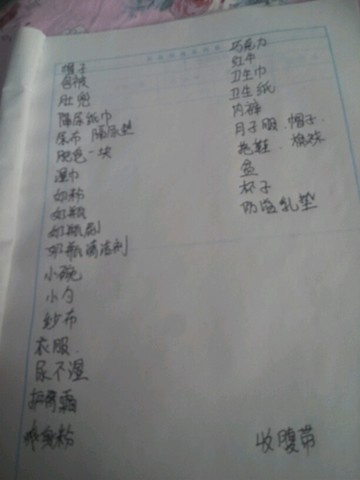 帽子
包被
肚兜
隔尿纸巾
尿布 隔尿垫
肥皂一块
湿巾
奶粉
奶瓶
奶瓶刷
奶瓶清洁剂
小碗
小勺
纱布
衣服
尿不湿
护臀霜
爽身粉
巧克力
红牛
卫生巾
卫生纸
内裤
月子服、帽子、
拖鞋、棉袜
盆
杯子
防溢乳垫
收腹带